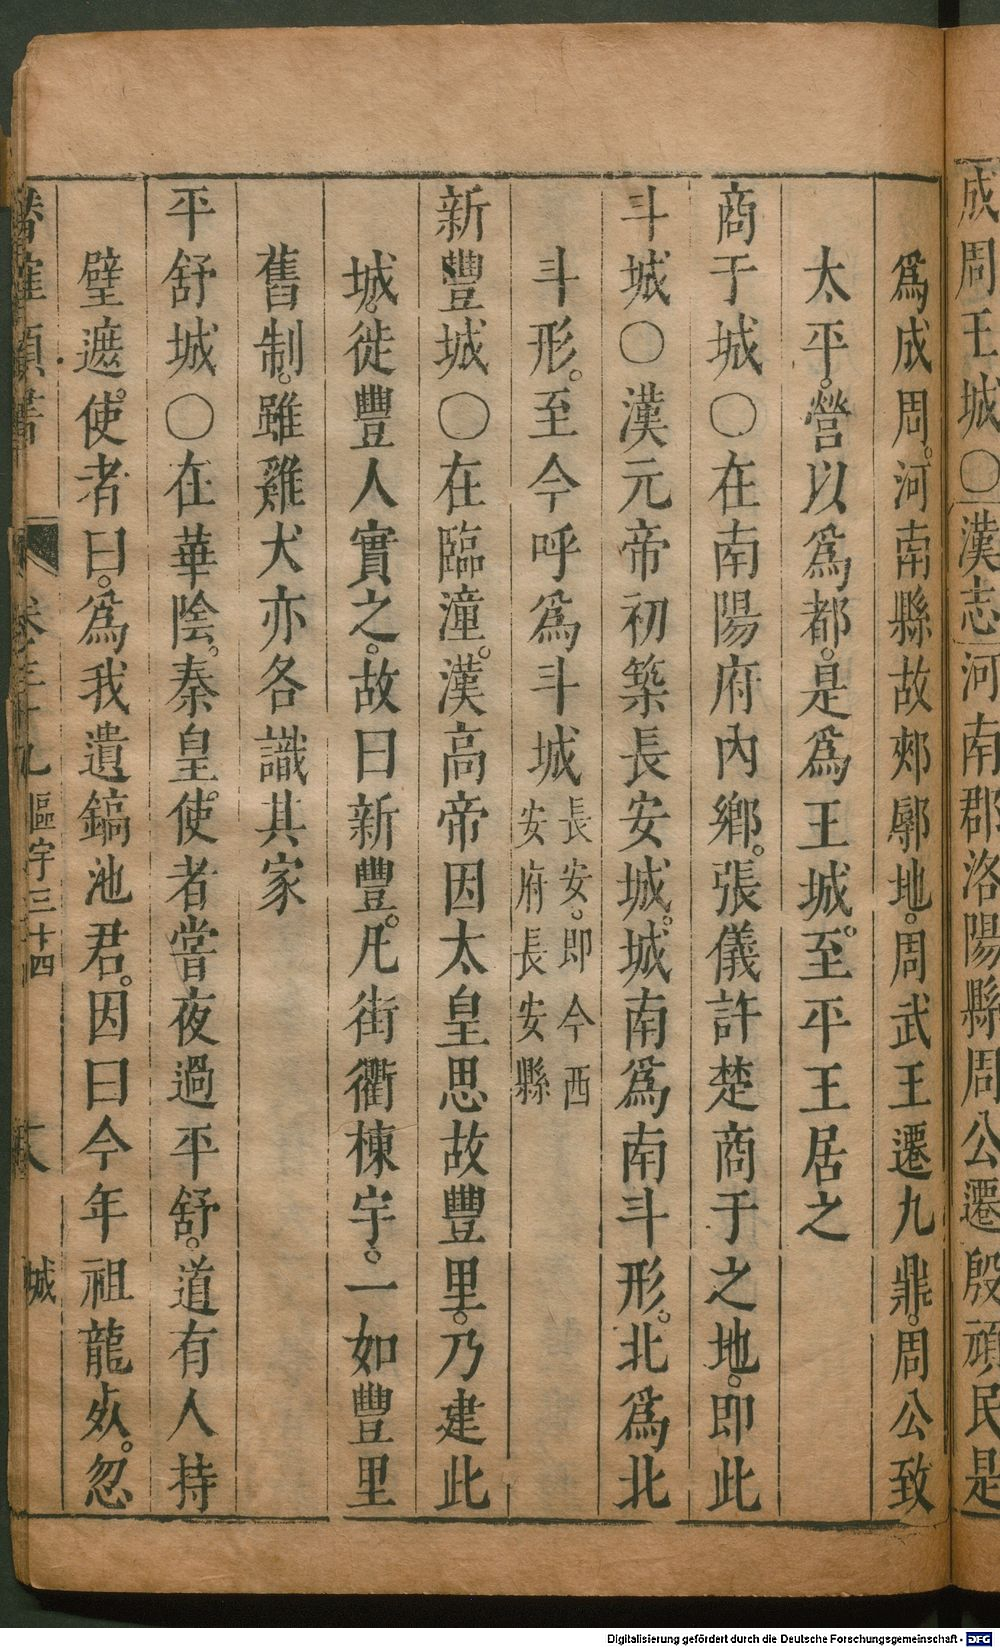 成周王城○漢志河南郡洛陽縣周公遷殷頑民是
爲成周。河南縣故郟鄏地。周武王遷九鼎。周公致
太平。營以爲都。是爲王城。至平王居之
商于城○在南陽府內鄉。張儀許楚商于之地。即此
斗城○漢元帝初築長安城。城南爲南斗形。北爲北
斗形。至今呼爲斗城長安。即今西安府長安縣
新豐城○在臨潼。漢高帝因太皇思故豐里。乃建此
城。徙豐人實之。故曰新豐。凡街衢棟宇。一如豐里
舊制。雖雞犬亦各識其家
平舒城○在華陰。秦皇。使者嘗夜過平舒。道有人持
璧遮。使者曰。爲我遺鎬池君。因曰今年祖龍死。忽
區宇三十四 城
Digitalisierung gefördert durch die Deutsche Forschungsgemeinschaft - DFG